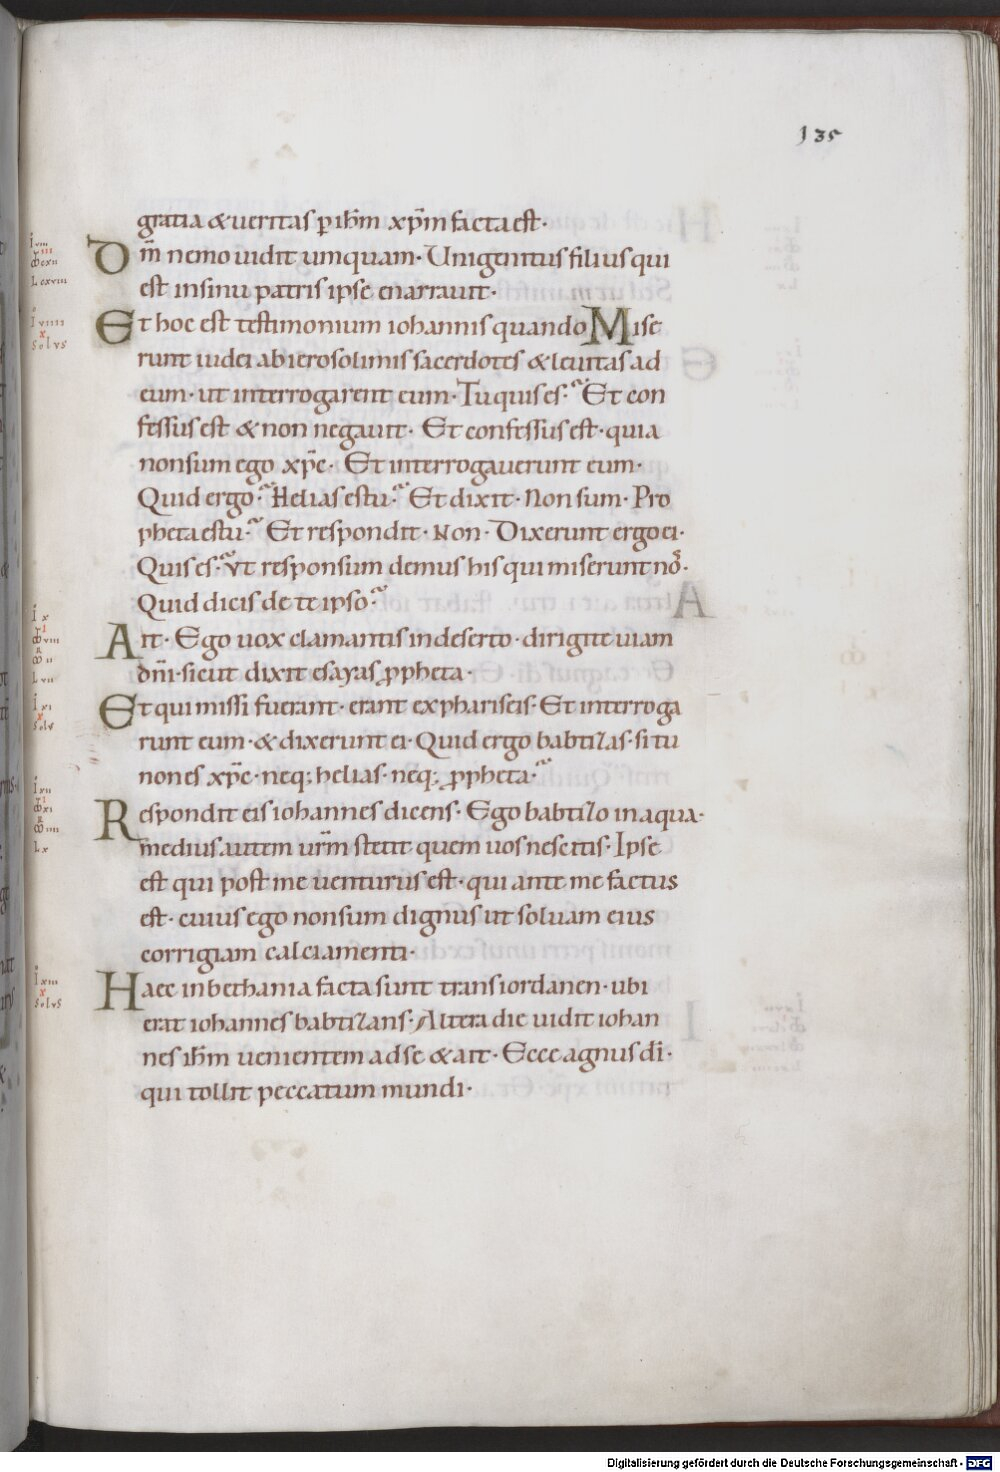 135
gratia & ueritas p ihm xp̄m facta est·
Dm̄ nemo uidit umquam· Unigenitus filius qui
est insinu patris ipse enarrauit·
Et hoc est testimonium iohannis quando Mise
runt iudei ab ierosolimis sacerdotes & leuitas ad
eum· ut interrogarent eum· Tu quis es· Et con
fessus est & non negauit· Et confessus est· quia
non sum ego xp̄c· Et interrogauerunt eum·
Quid ergo· Helias es tu· Et dixit· Non sum· Pro
pheta es tu· Et respondit· Non· Dixerunt ergo ei·
Quis es· Vt responsum demus his qui miserunt nō·
Quid dicis de te ipso·
Ait· Ego uox clamantis in deserto· dirigite uiam
dn̄i· sicut dixit esayas ꝓpheta·
Et qui missi fuerant· erant ex phariseis· Et interroga
runt eum· & dixerunt ei· Quid ergo babtizas· si tu
non es xp̄c· neq; helias· neq; ꝓpheta·
Respondit eis iohannes dicens· Ego babtizo in aqua·
medius autem ur̄m stetit quem uos nescitis· Ipse
est qui post me uenturus est· qui ante me factus
est· cuius ego non sum dignus ut soluam eius
corrigiam calciamenti·
Haec in bethania facta sunt trans iordanen· ubi
erat iohannes babtizans· Altera die uidit iohan
nes ihm uenientem ad se & ait· Ecce agnus dī·
qui tollit peccatum mundi·
Digitalisierung gefördert durch die Deutsche Forschungsgemeinschaft - DFG